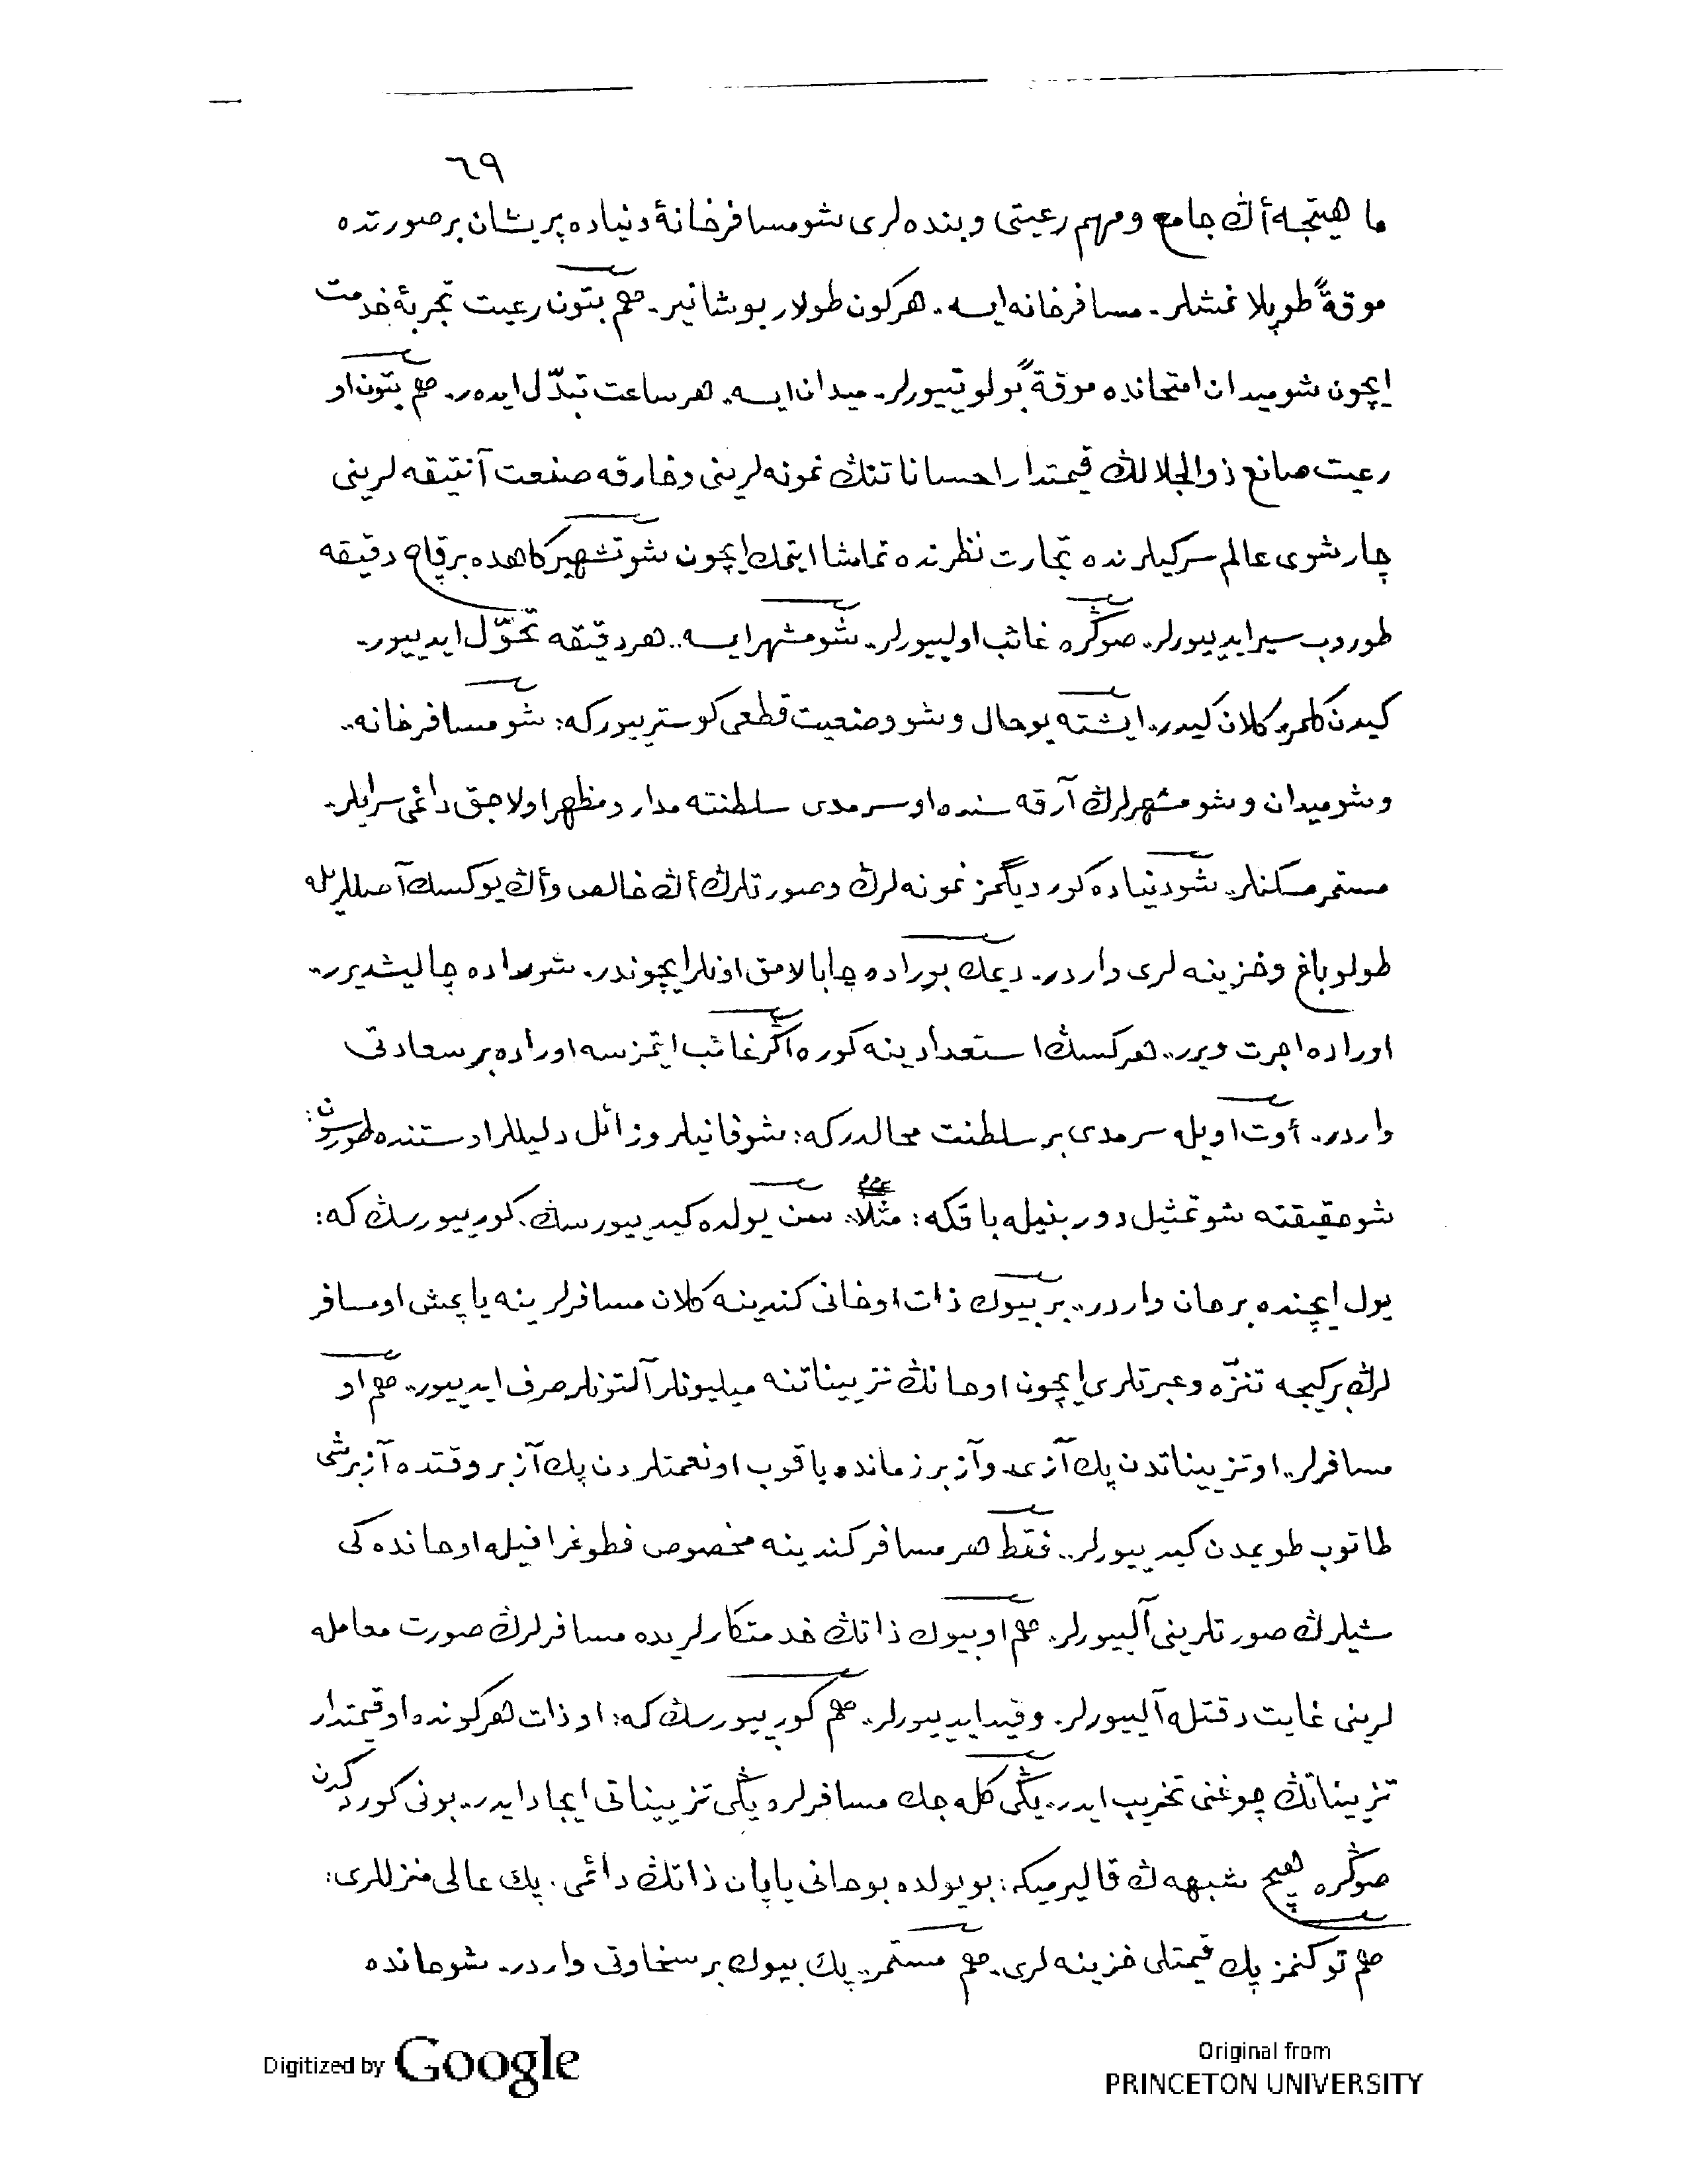 ٦٩
ماهيتجه أڭ جامع و مهم رعيتى و بنده لرى شو مسافرخانۀ دنياده پريشان بر صورتده
موقةً طوپلانمشلر. مسافرخانه ايسه. هركون طولار بوشانير. هم بتون رعيت تجربۀ خدمت
ايچون شو ميدان امتحانده موقةً بولونييورلر. ميدان ايسه. هر ساعت تبدّل ايده ر. هم بتون او
رعيت صانع ذو الجلالڭ قيمتدار احساناتنڭ نمونه لرينى و خارقه صنعت آنتيقه لرينى
چارشوى عالم سركيلرنده تجارت نظرنده تماشا ايتمك ايچون شو تشهيركاهده بر قاچ دقيقه
طوروب سير ايدييورلر. صوڭره غائب اولييورلر. شو مشهر ايسه.. هر دقيقه تحوّل ايدييور.
كيدن كلمز. كلان كيدر.. ايشته بو حال و شو وضعيت قطعى كوسترييور كه: شو مسافرخانه..
و شو ميدان و شو مشهرلرڭ آرقه سنده او سرمدى سلطنته مدار و مظهر اولاجق دائمى سرايلر.
مستمر مسكنلر.. شو دنياده كورديگمز نمونه لرڭ و صورتلرڭ أڭ خالص و أڭ يوكسك آصللريله
طولو باغ و خزينه لرى واردر. ديمك بوراده چابالامق اونلر ايچوندر. شوراده چاليشديرر..
اوراده اجرت ويرر.. هركسڭ استعدادينه كوره اگر غائب ايتمزسه اوراده بر سعادتى
واردر. أوت اويله سرمدى بر سلطنت محالدر كه: شو فانيلر و زائل دليللر اوستنده طورسون:
شو حقيقته شو تمثيل دوربينيله باق كه: مثلا.. سن يولده كيدييورسڭ. كورييورسڭ كه:
يول ايچنده بر خان واردر.. بر بيوك ذات او خانى كندينه كلان مسافرلرينه ياپمش او مسافر
لرڭ بر كيجه تنزّه و عبرتلرى ايچون او خانڭ تزييناتنه ميليونلر آلتونلر صرف ايدييور.. هم او
مسافرلر.. او تزييناتدن پك آزى و آز بر زمانده باقوب او نعمتلردن پك آز بر وقتده آز بر شى
طاتوب طويمدن كيدييورلر.. فقط هر مسافر كندينه مخصوص فطوغرافيله او خانده كى
شيلرڭ صورتلرينى آلييورلر. هم او بيوك ذاتڭ خدمتكارلريده مسافرلرڭ صورت معامله
لرينى غايت دقتله آلييورلر. و قيد ايدييورلر.. هم كورييورسڭ كه: او ذات هركونده او قيمتدار
تزييناتڭ چوغنى تخريب ايدر. يڭى كله جك مسافرلره يڭى تزييناتى ايجاد ايدر.. بونى كوردكدن
صوڭره هيچ شبهه ڭ قاليرميكه: بو يولده بو خانى ياپان ذاتڭ دائمى. پك عالى منزللرى:
هم توكنمز پك قيمتلى خزينه لرى. هم مستمر.. پك بيوك بر سخاوتى واردر. شو خانده
Digitized by Google
Original from
PRINCETON UNIVERSITY